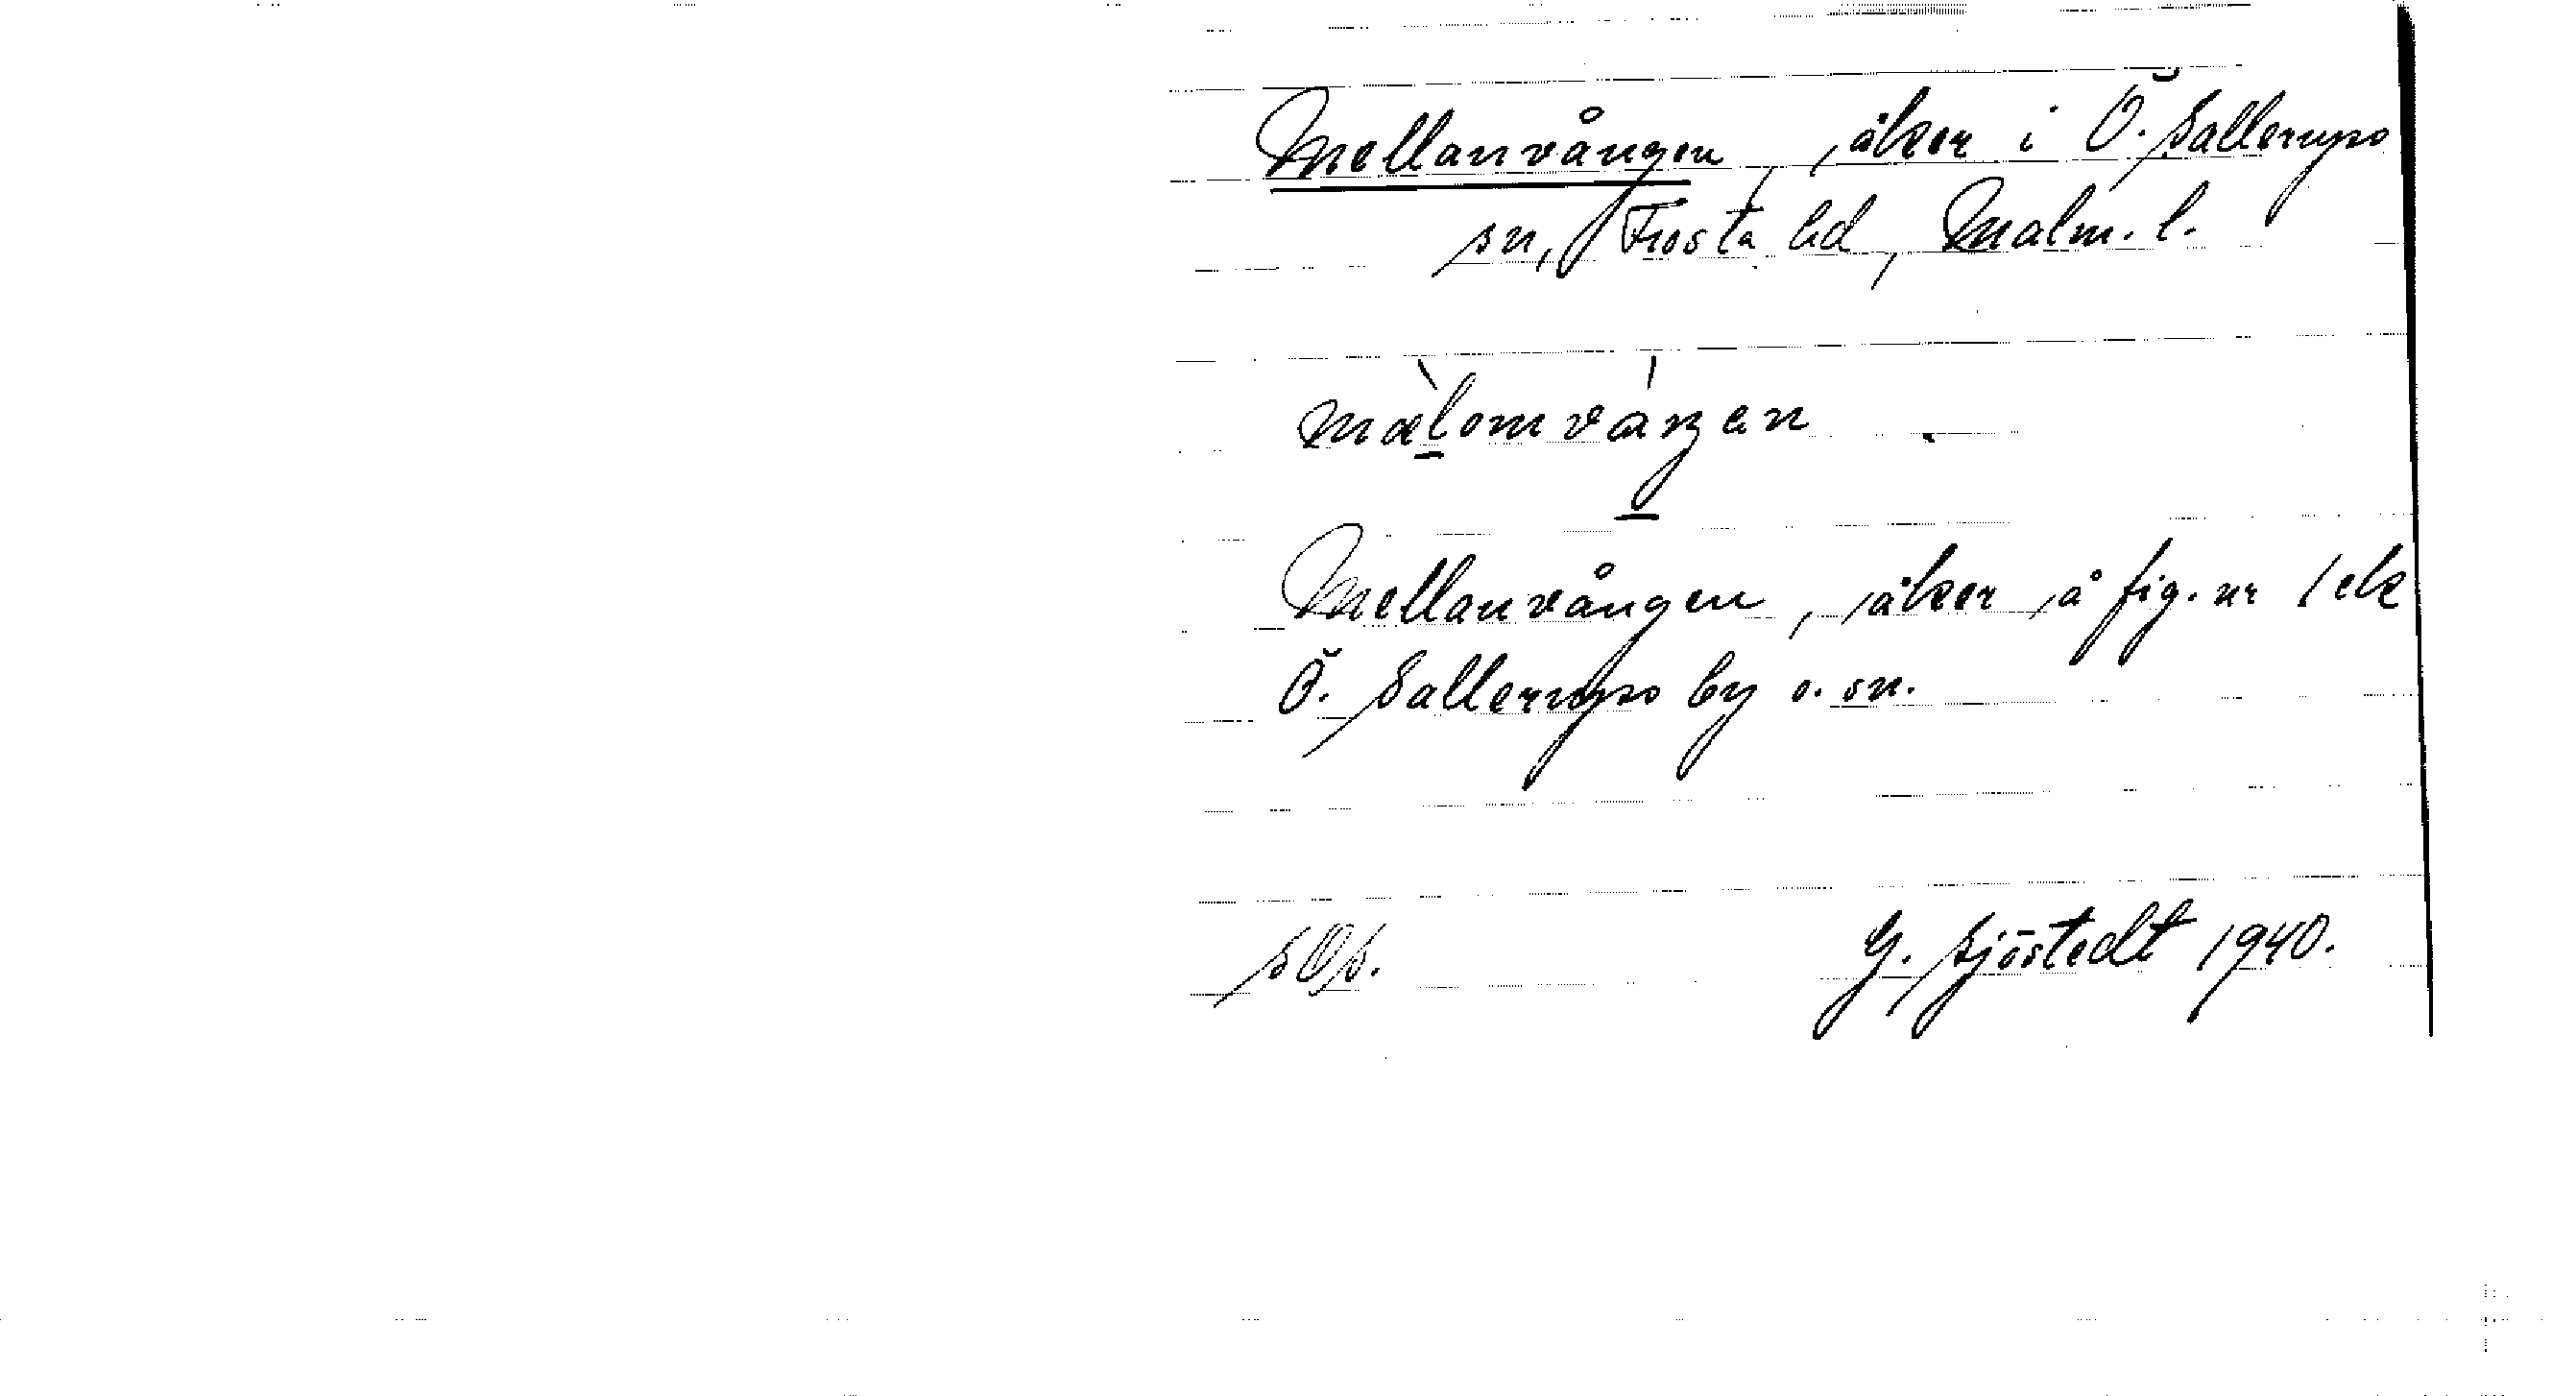 Mellanvången, åker i Ö. Sallerups
sn, Frosta hd, Malm. l.
mæ̀lomváŋen
Mellanvången, åker å fig. nr 1 ek
Ö. Sallerups by o. sn.
sOs. G. Sjöstedt 1940.